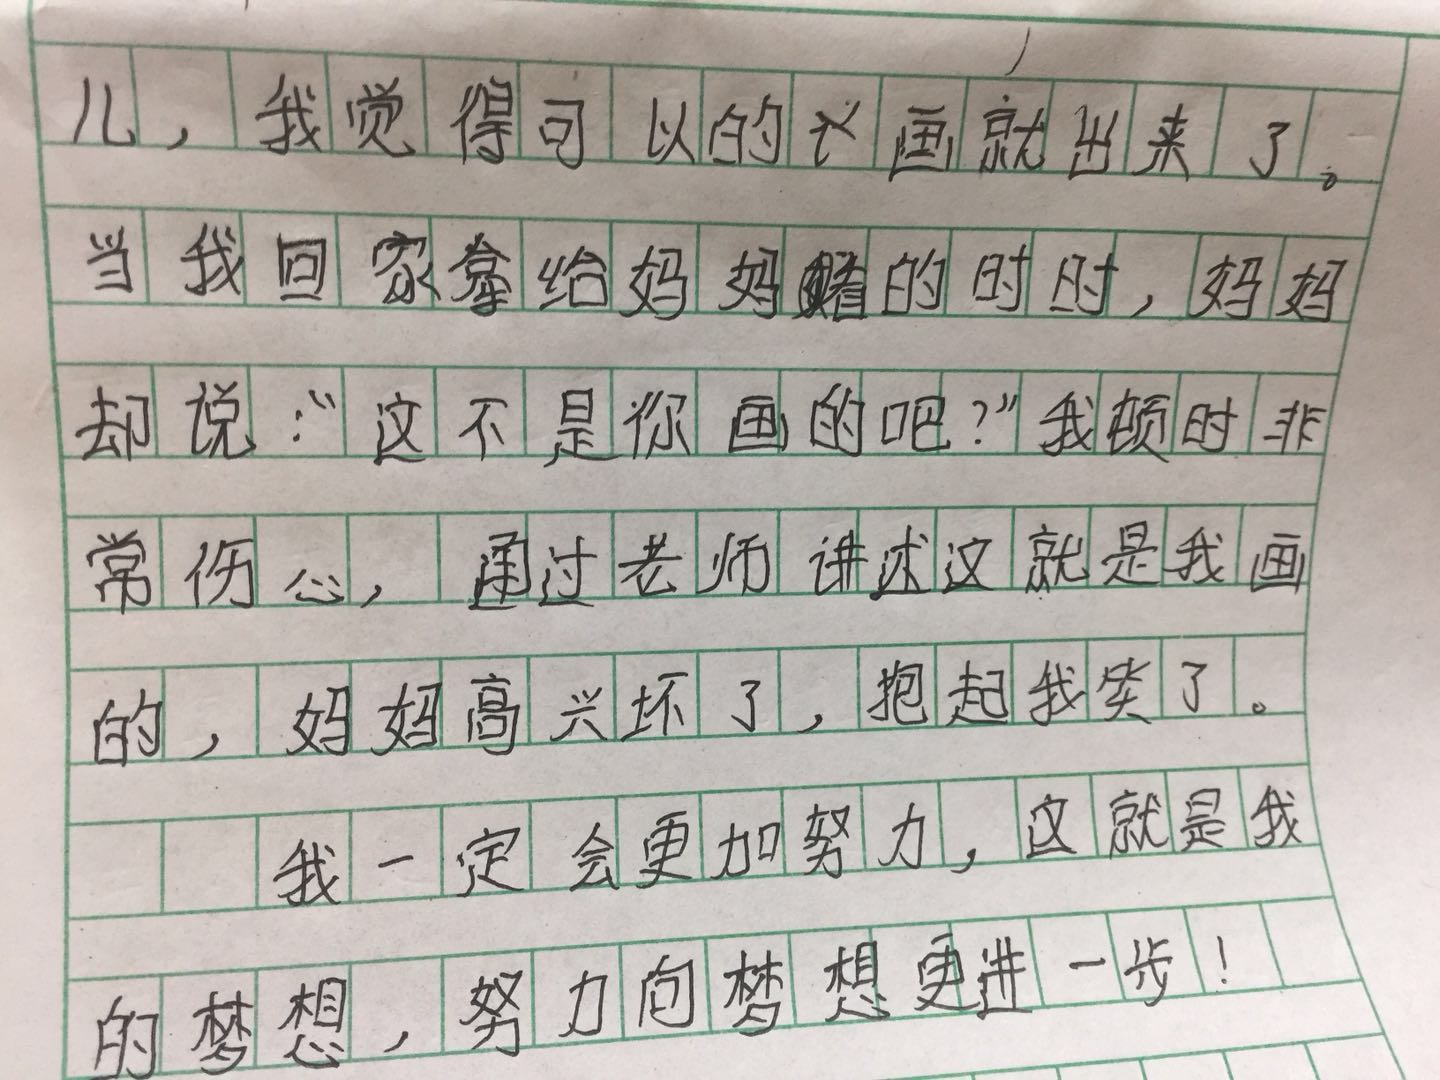 儿，我觉得可以的画就出来了。
当我回家拿给妈妈看的时时，妈妈
却说：“这不是你画的吧？”我顿时非
常伤心，通过老师讲述这就是我画
的，妈妈高兴坏了，抱起我笑了。
我一定会更加努力，这就是我
的梦想，努力向梦想更进一步！